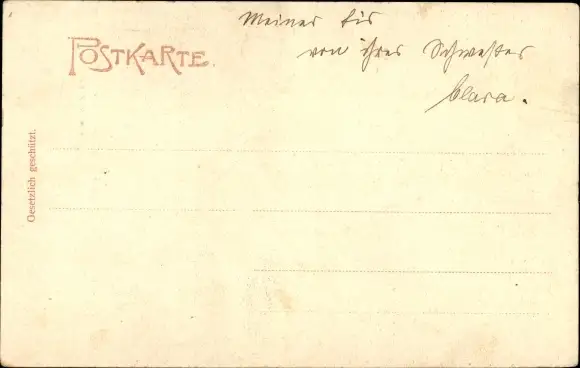 Meiner
von ihrer Schwester
Clara.
POSTKARTE.
Gesetzlich geschützt.